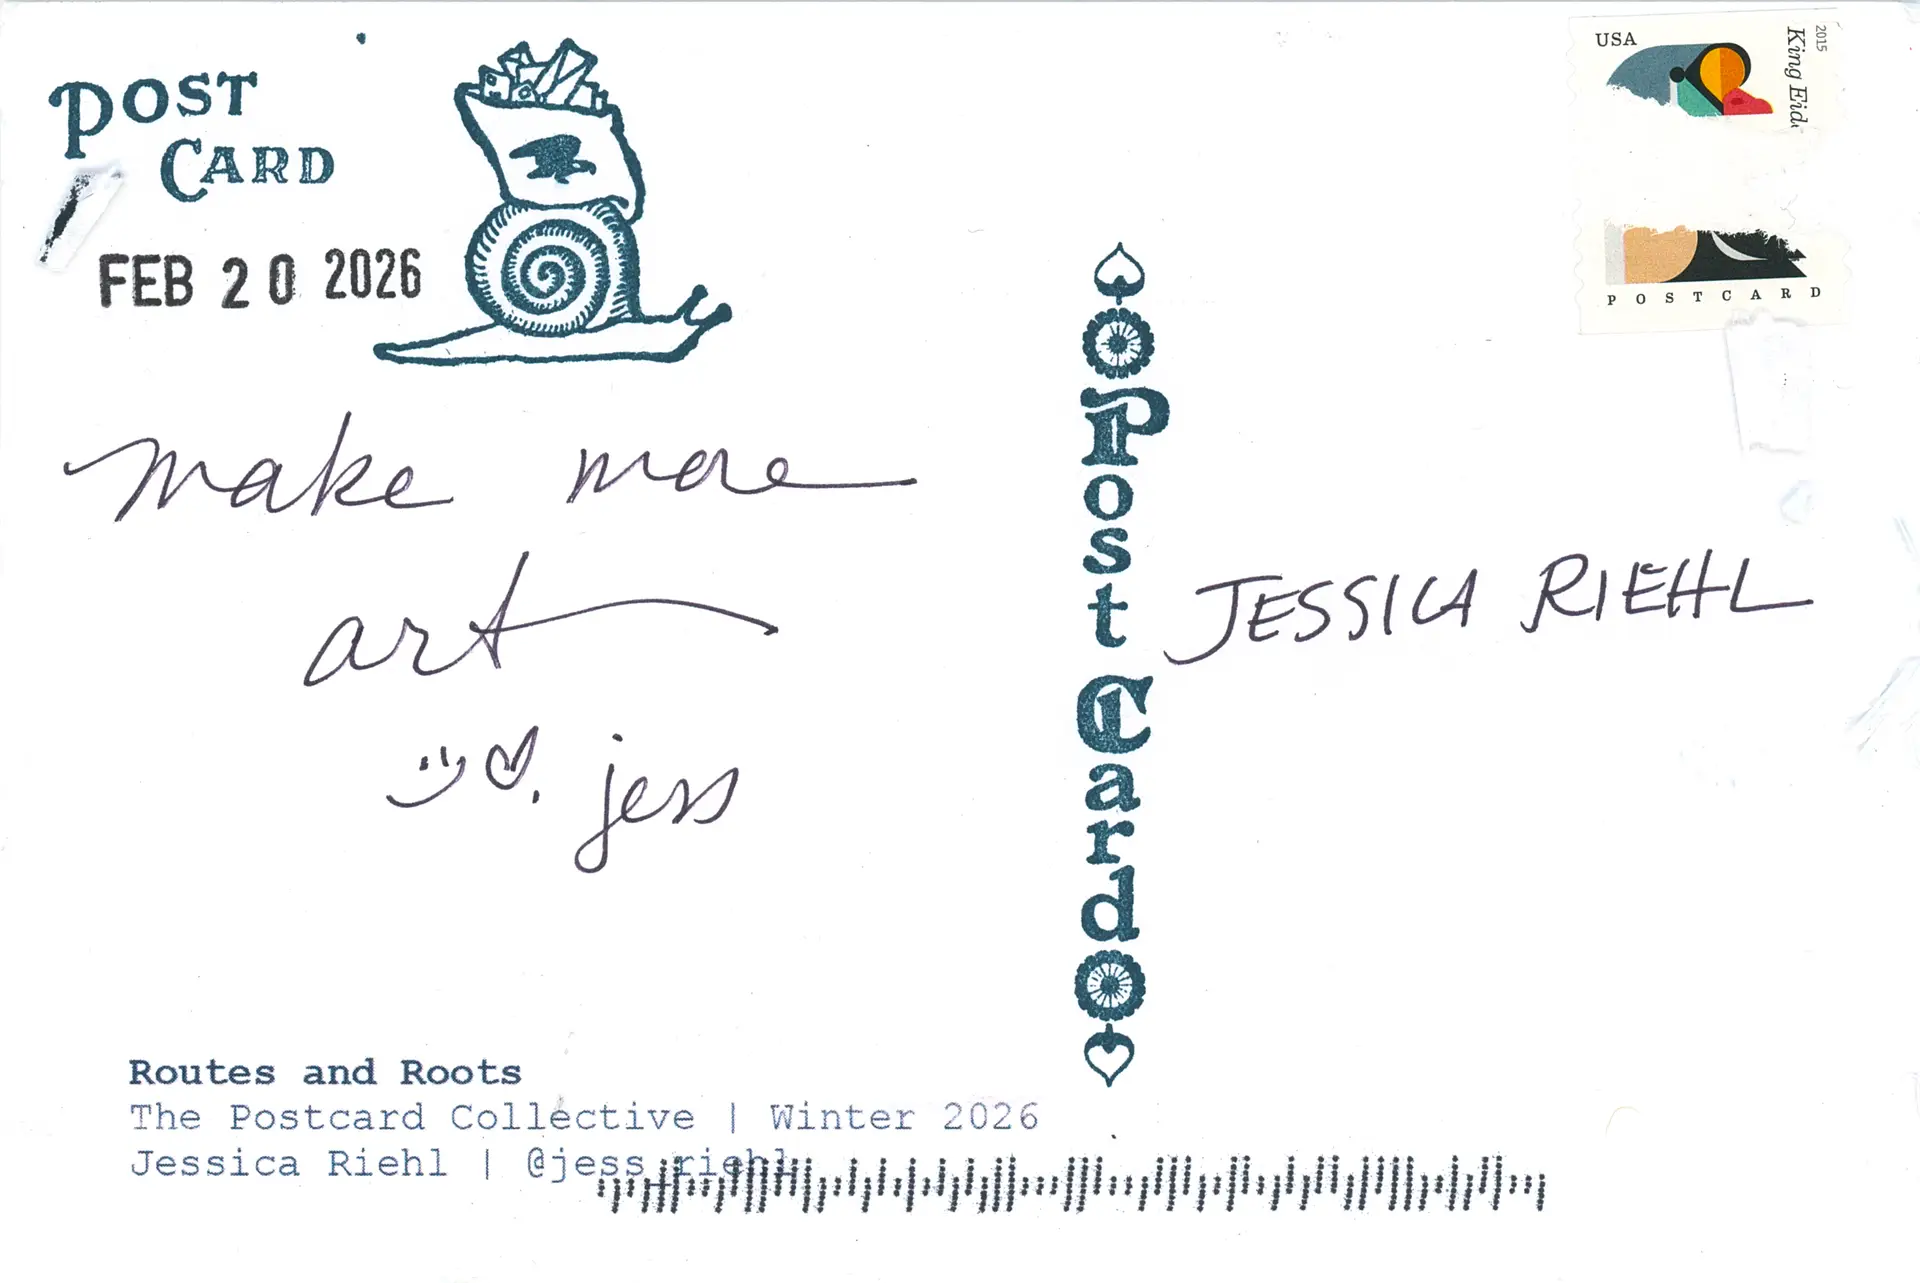 POST
CARD
FEB 20 2026
make more
art
jess
USA
2015
King Eid
POSTCARD
Post Card
JESSICA RIEHL
Routes and Roots
The Postcard Collective | Winter 2026
Jessica Riehl | @jess_riehl